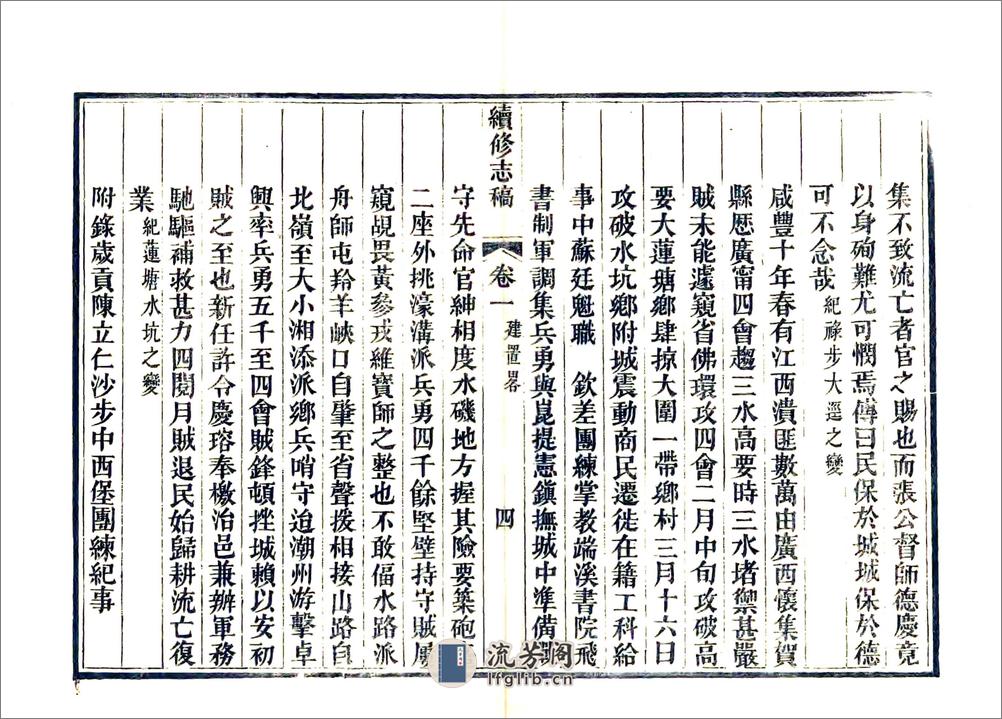 集不致流亡者官之賜也而張公督師德慶竟
以身殉難尤可憫焉傳曰民保於城城保於德
可不念哉 紀祿步大逕之變
咸豐十年春有江西潰匪數萬由廣西懷集賀
縣歷廣甯四會趨三水高要時三水堵禦甚嚴
賊未能遽窺省佛環攻四會二月中旬攻破高
要大蓮塘鄉肆掠大圍一帶鄉村三月十六日
攻破水坑鄉附城震動商民遷徙在籍工科給
事中蘇廷魁職 欽差團練掌教端溪書院飛
書制軍調集兵勇與崑提憲鎮撫城中準備
續修志稿 卷一 建置畧 四
守先命官紳相度水磯地方握其險要築砲
二座外挑濠溝派兵勇四千餘堅壁持守賊屢
窺覘畏黃參戎維寶師之整也不敢偪水路派
舟師屯羚羊峽口自肇至省聲援相接山路自
北嶺至大小湘添派鄉兵哨守迨潮州游擊卓
興率兵勇五千至四會賊鋒頓挫城賴以安初
賊之至也新任許令慶瑢奉檄治邑兼辦軍務
馳驅補救甚力四閱月賊退民始歸耕流亡復
業 紀蓮塘水坑之變
附錄歲貢陳立仁沙步中西堡團練紀事
流芳阁
lfglib.cn